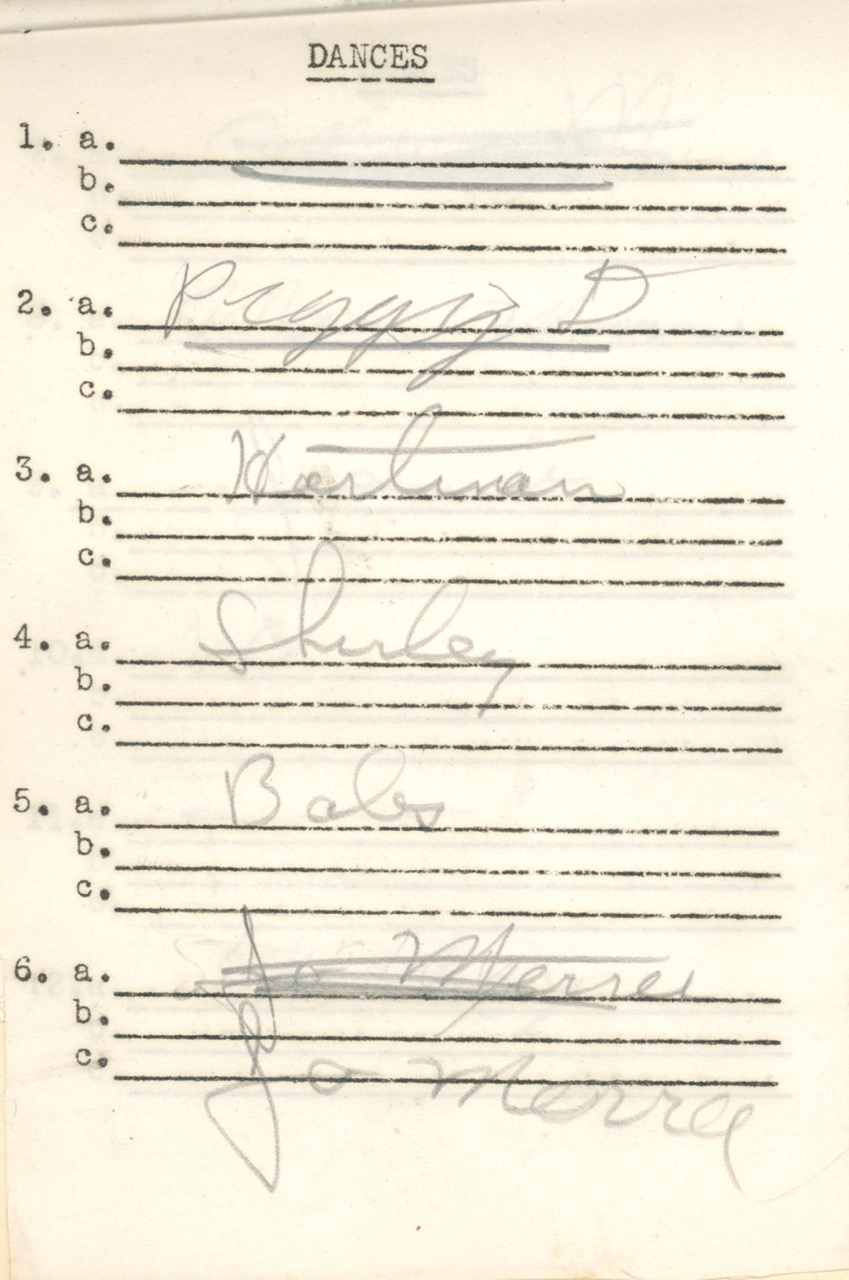 DANCES
1. a.
b.
c.
2. a. Peggy D
b.
c.
3. a. Hartman
b.
c.
4. a. Shirley
b.
c.
5. a. Babs
b.
c.
6. a. Jo Merrei
b.
c.
Jo Merre